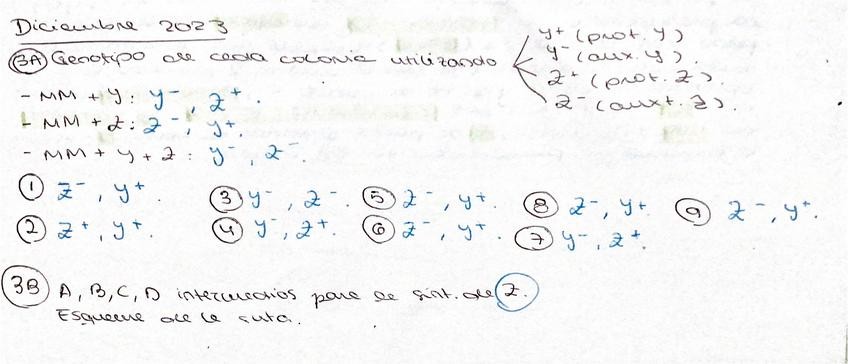 Diciembre 2023
3A Genotipo de cada colonia utilizando
y+ (prot. y)
y- (aux. y).
z+ (prot. z).
z- (auxt. z).
- MM + y: y-, z+.
- MM + z: z-, y+.
- MM + y + z: y-, z-.
1 z-, y+. 3 y-, z-. 5 z-, y+. 8 z-, y+. 9 z-, y+.
2 z+, y+. 4 y-, z+. 6 z-, y+. 7 y-, z+.
3B A, B, C, D intermediarios para la sint. de z.
Esquema de la ruta.